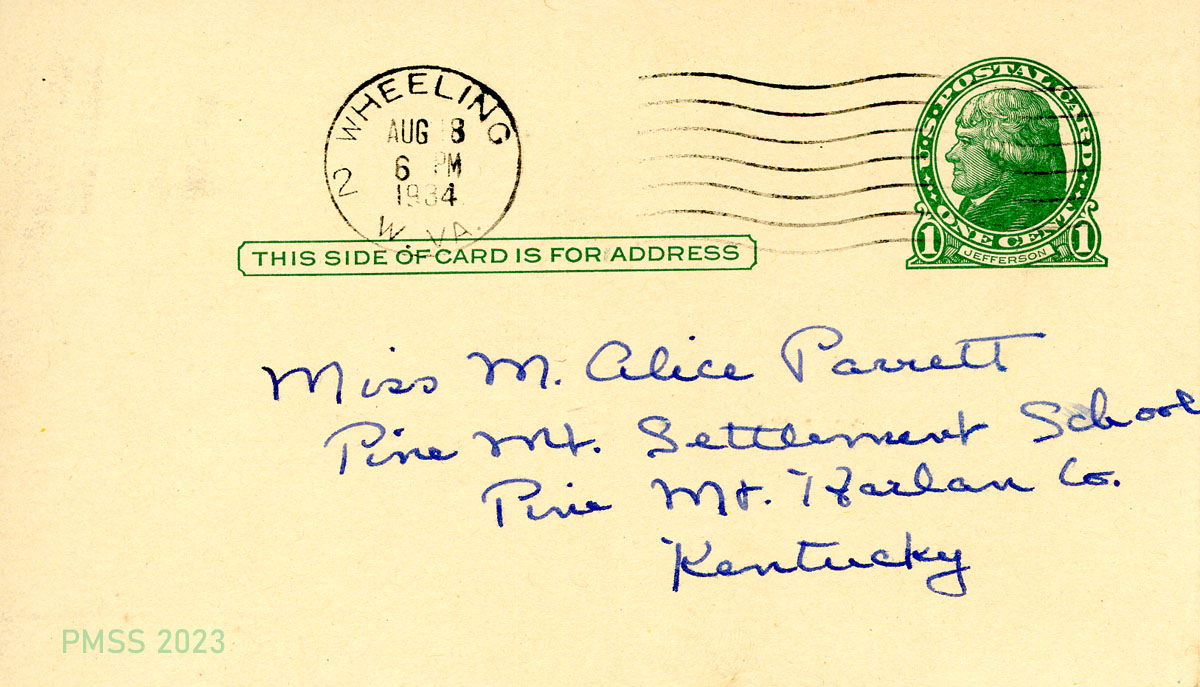 WHEELING
AUG 18
6 PM
1934
2
W. VA.
U.S. POSTAL CARD
ONE CENT
1 JEFFERSON 1
THIS SIDE OF CARD IS FOR ADDRESS
Miss M. Alice Parrett
Pine Mt. Settlement School
Pine Mt. Harlan Co.
Kentucky
PMSS 2023